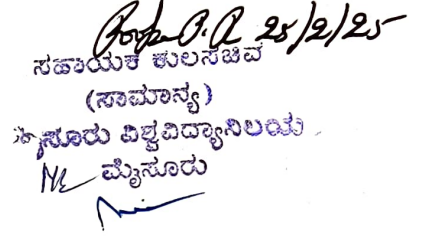 P. R 25/2/25
ಸಹಾಯಕ ಕುಲಸಚಿವ
(ಸಾಮಾನ್ಯ)
ಮೈಸೂರು ವಿಶ್ವವಿದ್ಯಾನಿಲಯ
ಮೈಸೂರು